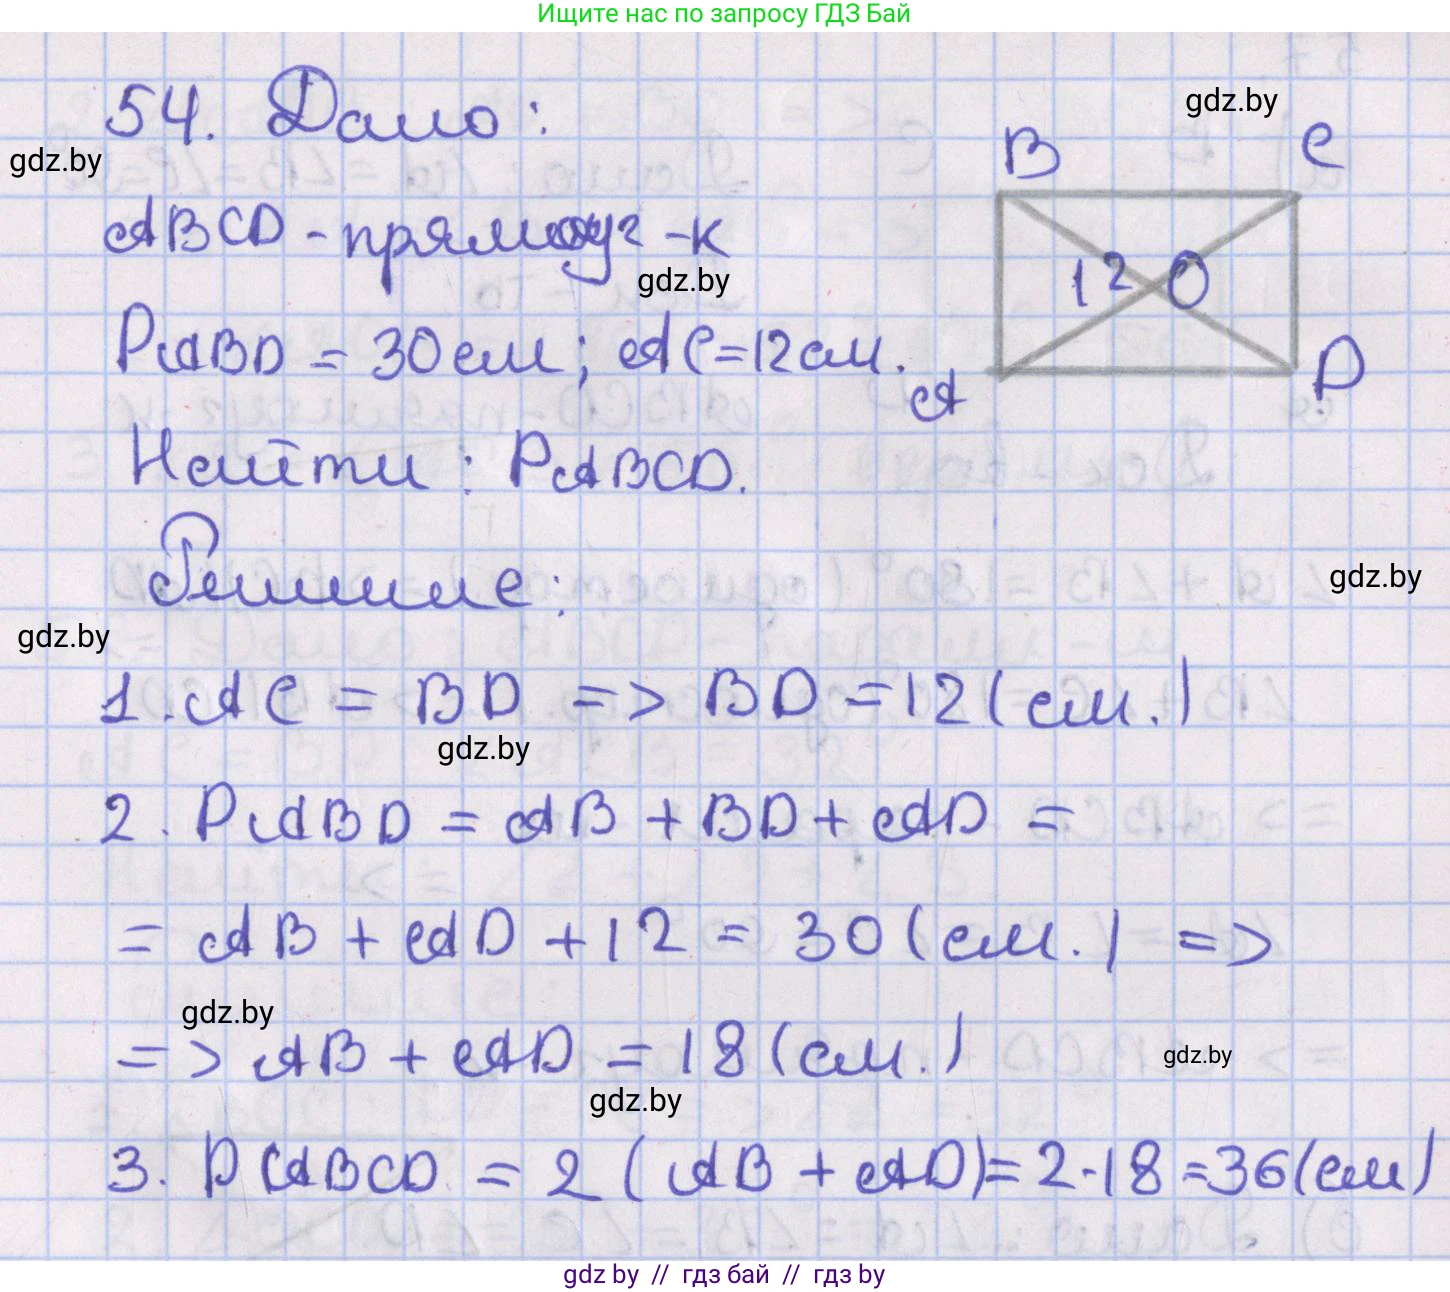 Ищите нас по запросу ГДЗ Бай
54. Дано:
gdz.by
gdz.by
B C
ABCD - прямоуг-к
gdz.by
12 O
PABD = 30 см; AC = 12 см.
A D
Найти: PABCD.
Решение:
gdz.by
gdz.by
1. AC = BD => BD = 12 (см.)
gdz.by
2. PABD = AB + BD + AD =
= AB + AD + 12 = 30 (см.) =>
gdz.by
=> AB + AD = 18 (см.)
gdz.by
gdz.by
3. PABCD = 2 (AB + AD) = 2·18 = 36 (см)
gdz by // гдз бай // гдз by